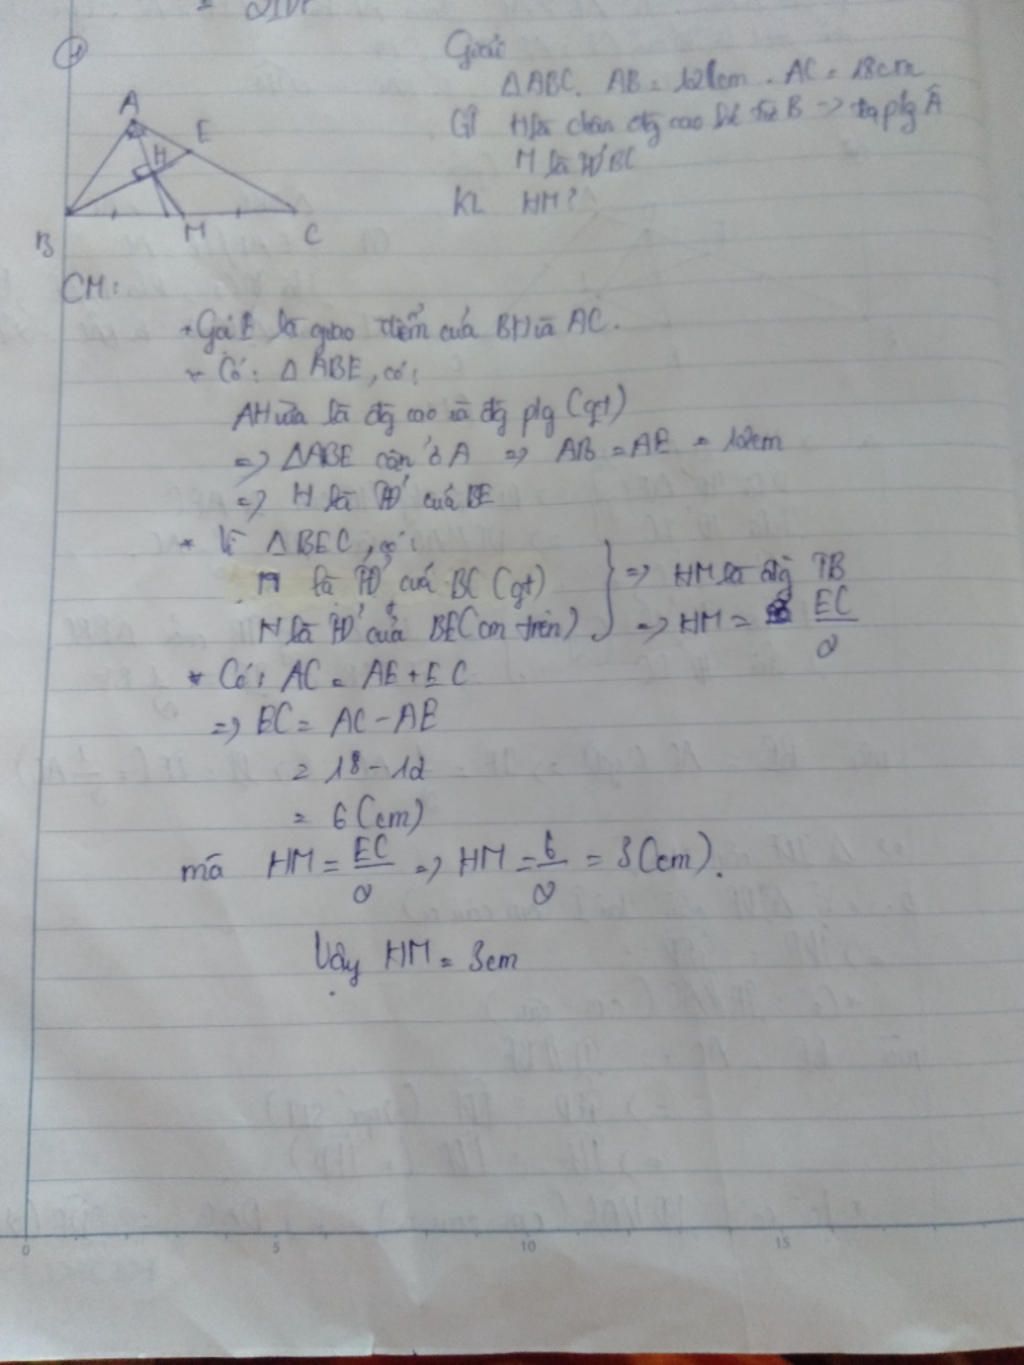 1
Giải
ΔABC. AB = 12cm. AC = 18cm
GT H là chân đg cao kẻ từ B => tia plg Â
M là TĐ BC
KL HM?
A
E
H
B
M
C
CM:
* Gọi E là giao điểm của BH và AC.
* Có: Δ ABE, có:
AH vừa là đg cao và đg plg (gt)
=> ΔABE cân ở A => AB = AE = 12cm
=> H là TĐ của BE
* Vì Δ BEC, có:
M là TĐ của BC (gt)
=> HM là đg TB
H là TĐ của BE (cm trên)
=> HM = EC/2
* Có: AC = AE + EC
=> EC = AC - AE
= 18 - 12
= 6 (cm)
mà HM = EC/2 => HM = 6/2 = 3 (cm).
Vậy HM = 3cm
0 5 10 15